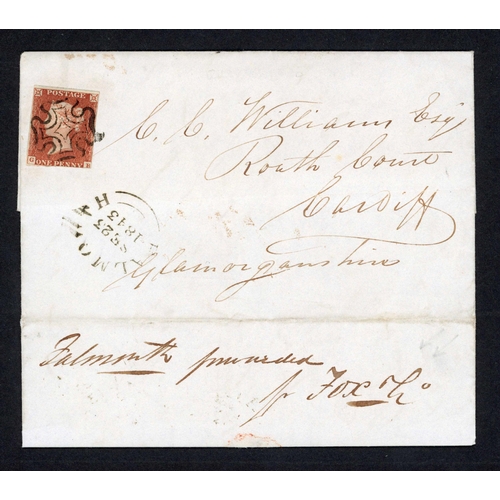 POSTAGE
ONE PENNY
C. C. Williams Esq
Roath Court
Cardiff
Glamorganshire
FALMOUTH
SE 23
1843
Falmouth forwarded
pr Fox & Co